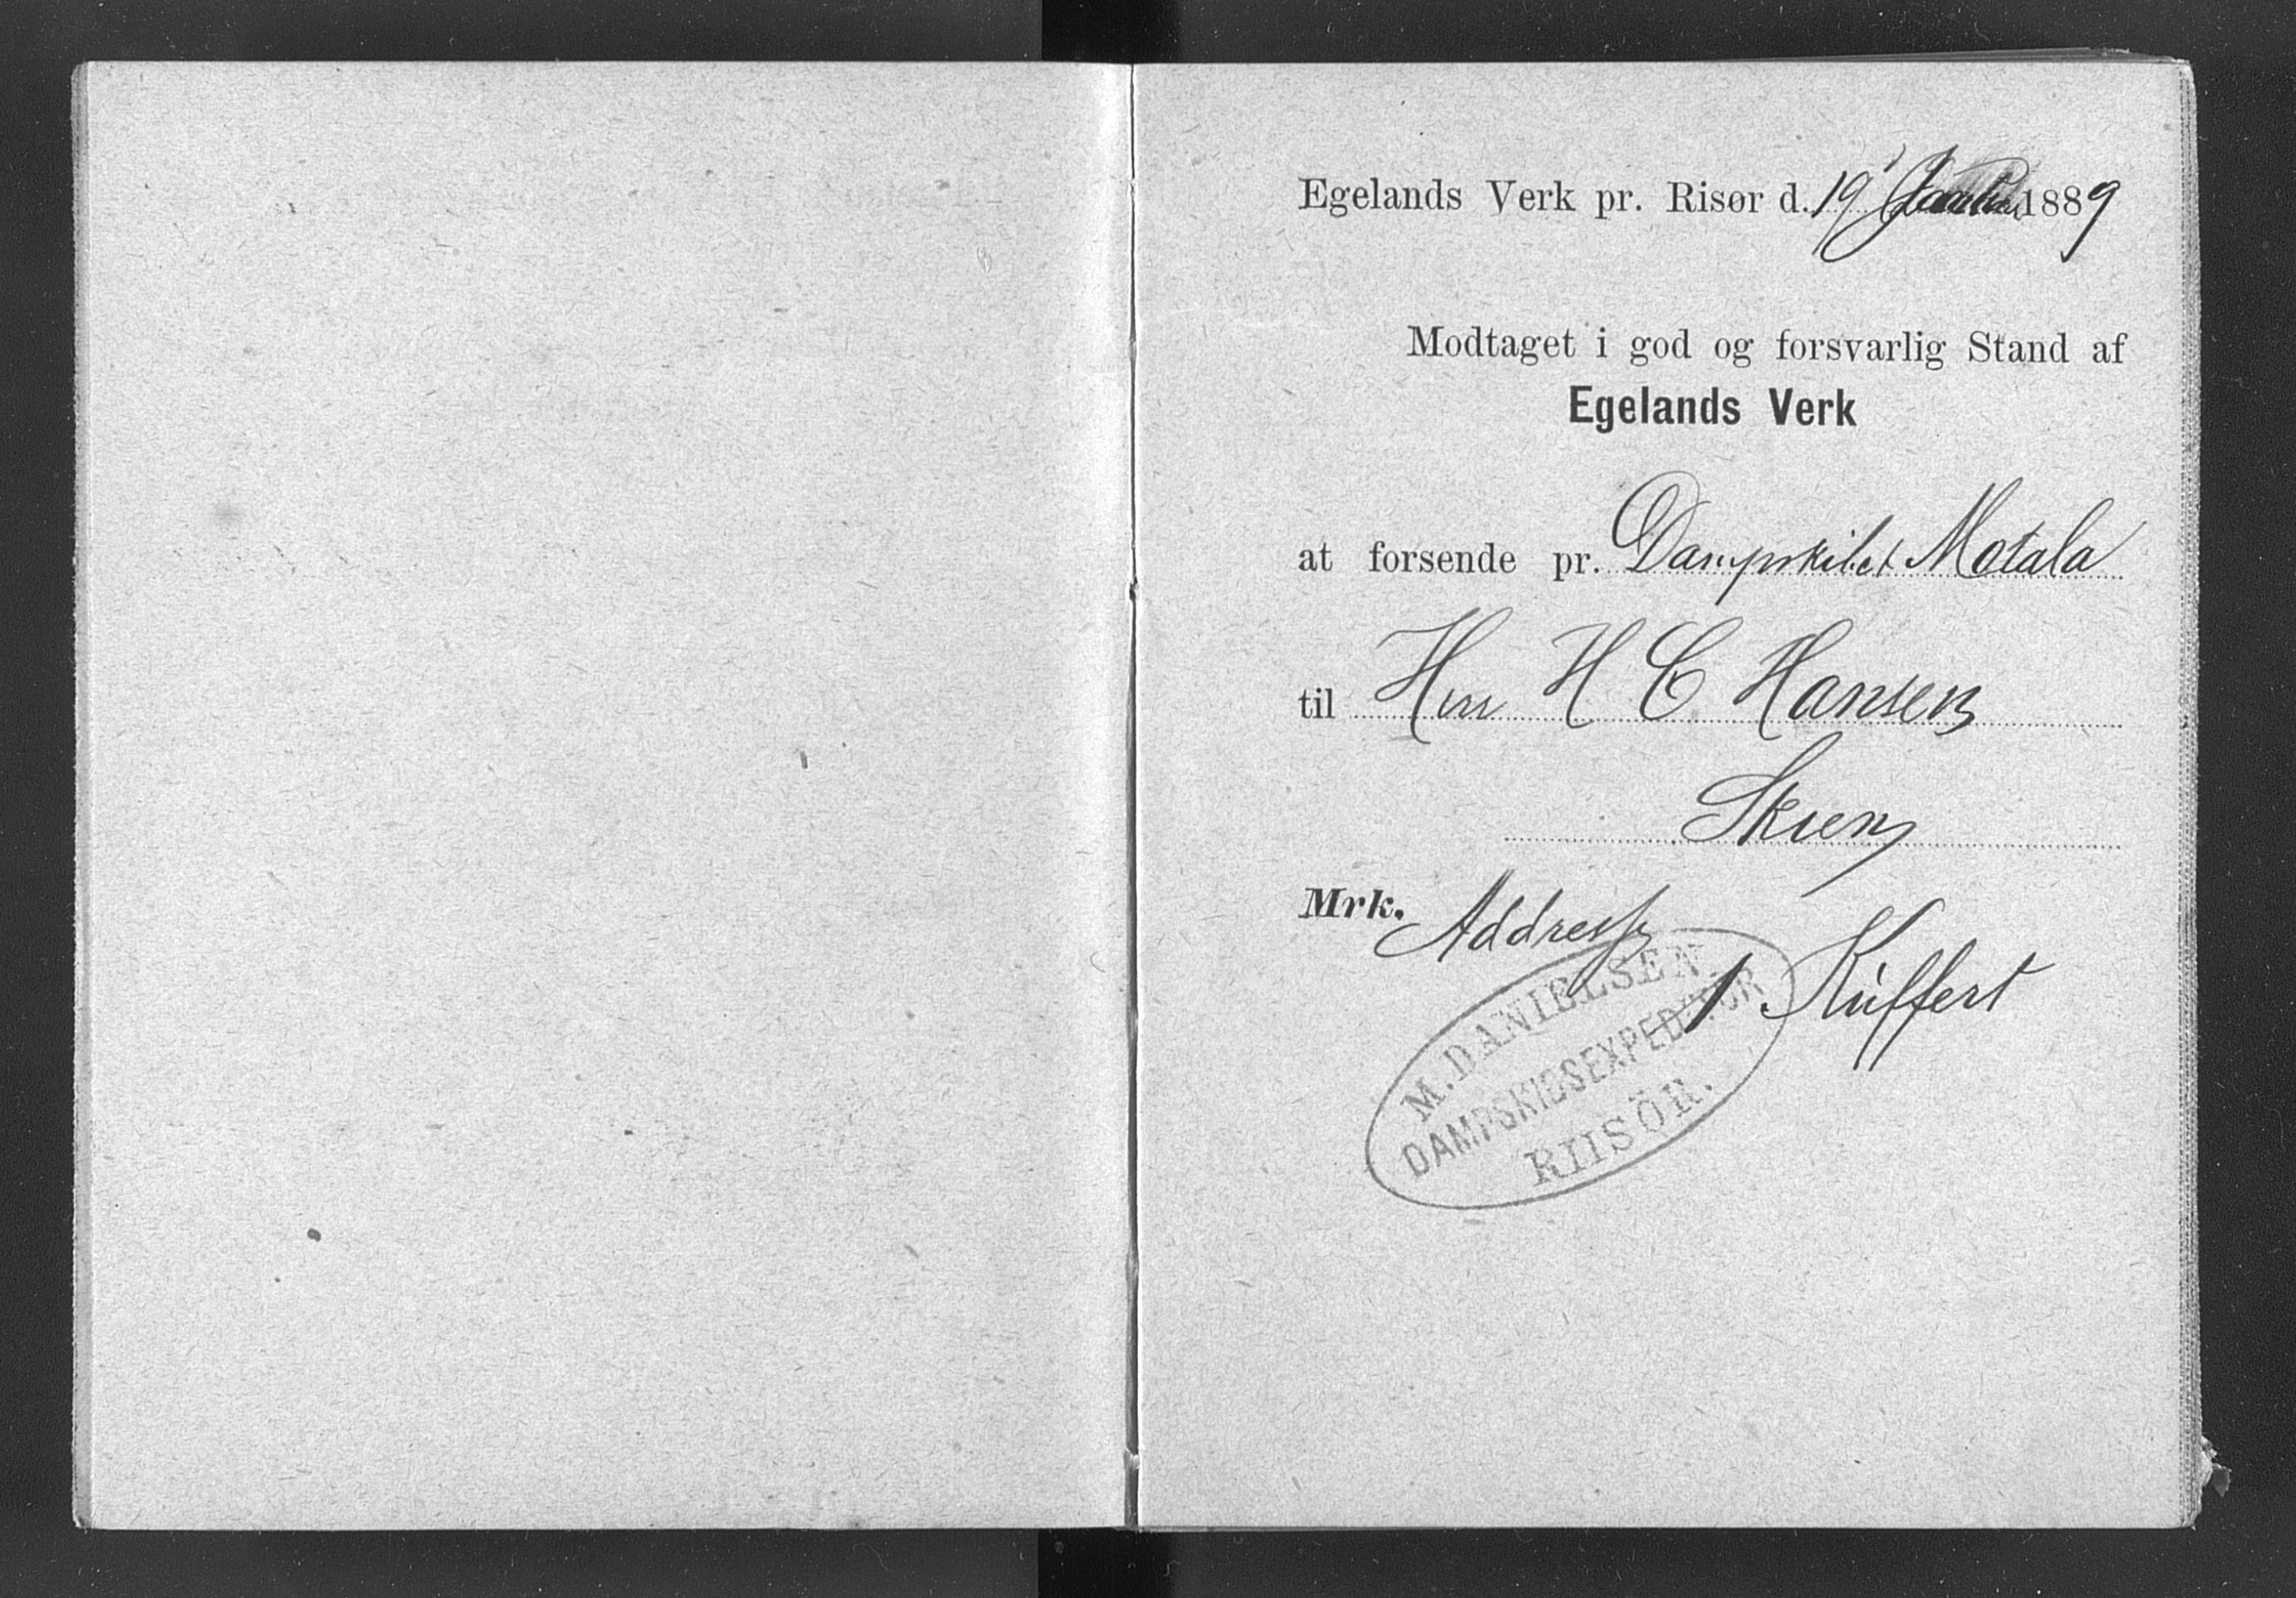 Egelands Verk pr. Risør d. 19 1889
Modtaget i god og forsvarlig Stand af
Egelands Verk
at forsende pr. Dampskibet Motala
til Herr H C Hansen
Skien
Mrk. Addresse
1 Kuffert
M. DANIELSEN
DAMPSKIBSEXPEDITØR
RIISÖR.